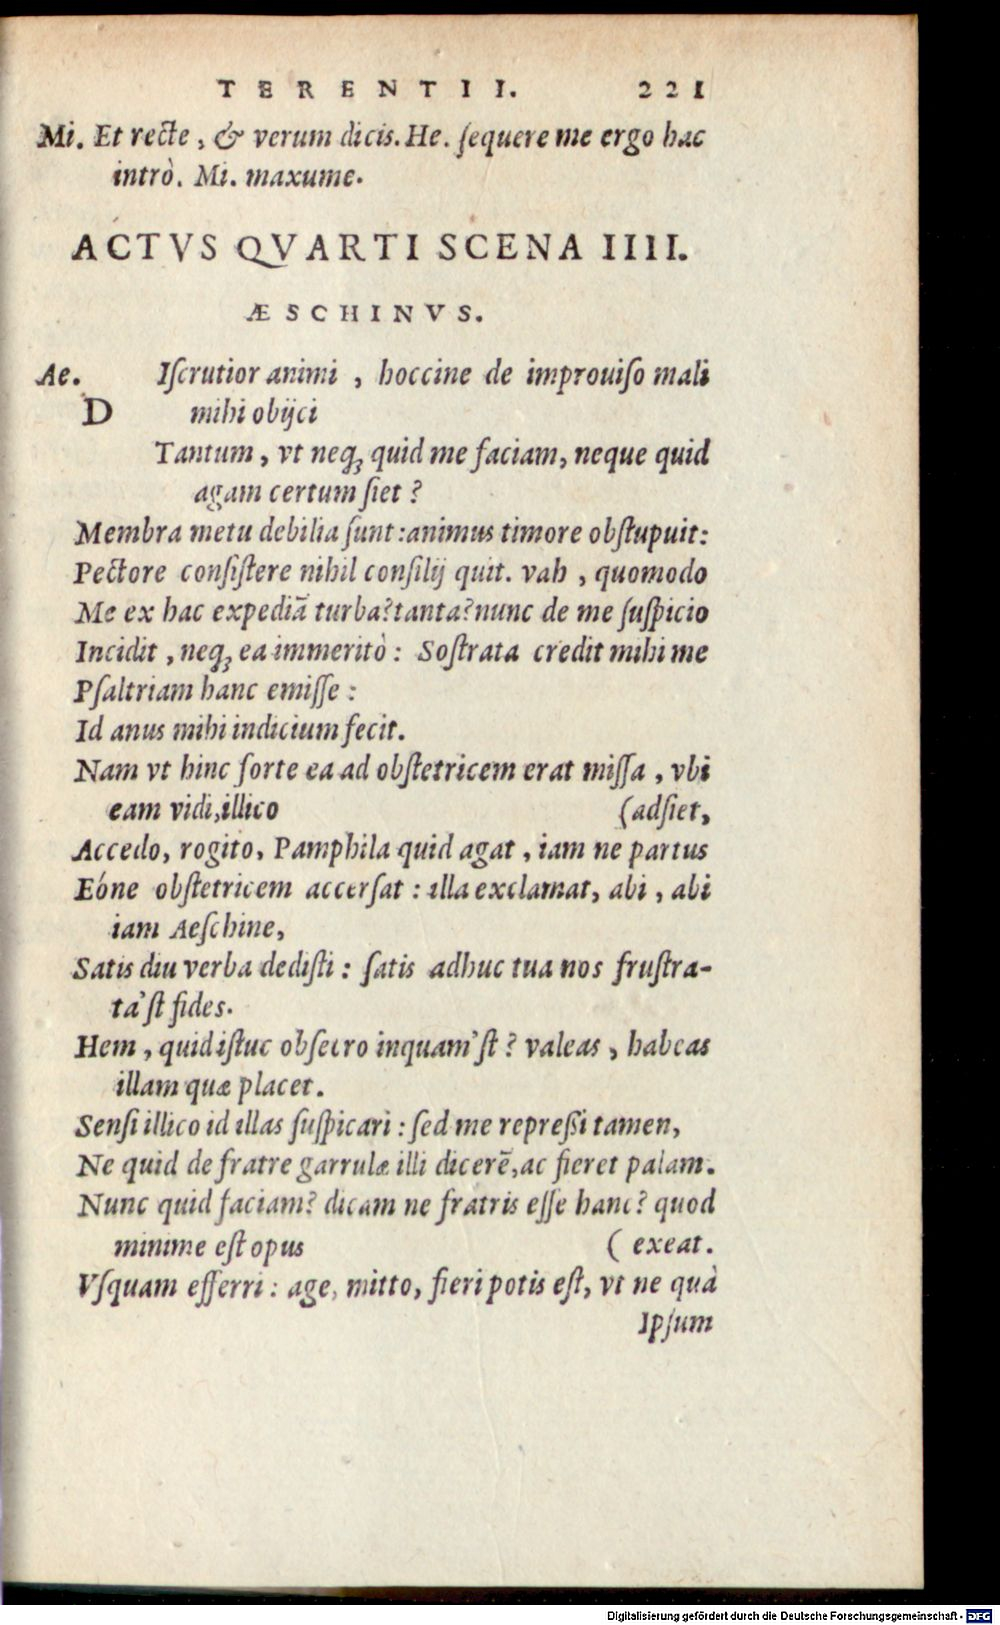 TERENTII. 221
Mi. Et recte, & verum dicis. He. ſequere me ergo hac
intrò. Mi. maxume.
ACTVS QVARTI SCENA IIII.
ÆSCHINVS.
Ae. Iſcrutior animi, hoccine de improuiſo mali
D mihi obijci
Tantum, vt neq; quid me faciam, neque quid
agam certum ſiet?
Membra metu debilia ſunt: animus timore obſtupuit:
Pectore conſiſtere nihil conſilij quit. vah, quomodo
Me ex hac expediā turba? tanta? nunc de me ſuſpicio
Incidit, neq; ea immeritò: Soſtrata credit mihi me
Pſaltriam hanc emiſſe:
Id anus mihi indicium fecit.
Nam vt hinc forte ea ad obſtetricem erat miſſa, vbi
eam vidi, illico (adſiet,
Accedo, rogito, Pamphila quid agat, iam ne partus
Eóne obſtetricem accerſat: illa exclamat, abi, abi
iam Aeſchine,
Satis diu verba dediſti: ſatis adhuc tua nos fruſtra-
ta'ſt fides.
Hem, quid iſtuc obſecro inquam'ſt? valeas, habeas
illam quæ placet.
Senſi illico id illas ſuſpicari: ſed me repreßi tamen,
Ne quid de fratre garrulæ illi dicerē, ac fieret palam.
Nunc quid faciam? dicam ne fratris eſſe hanc? quod
minime eſt opus (exeat.
Vſquam efferri: age, mitto, fieri potis eſt, vt ne quà
Ipſum
Digitalisierung gefördert durch die Deutsche Forschungsgemeinschaft - DFG